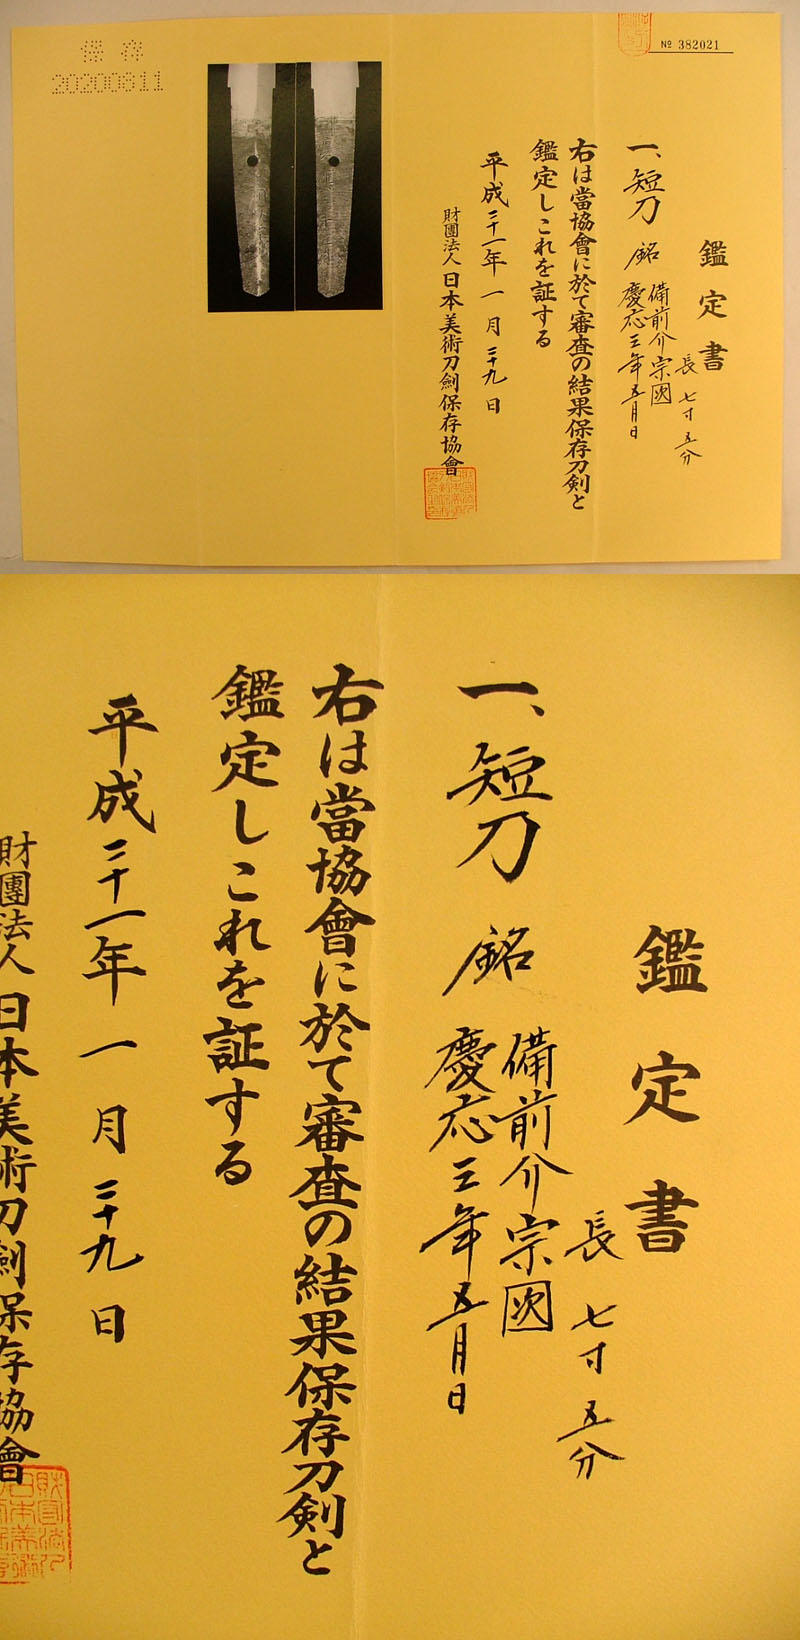 保存
20200811
№ 382021
鑑定書
長 七寸五分
一、短刀 銘 備前介宗國
慶応三年五月日
右は當協會に於て審査の結果保存刀剣と
鑑定しこれを証する
平成二十一年一月二十九日
財團法人 日本美術刀劍保存協會
鑑定書
長 七寸五分
一、短刀 銘 備前介宗國
慶応三年五月日
右は當協會に於て審査の結果保存刀剣と
鑑定しこれを証する
平成二十一年一月二十九日
財團法人 日本美術刀劍保存協會